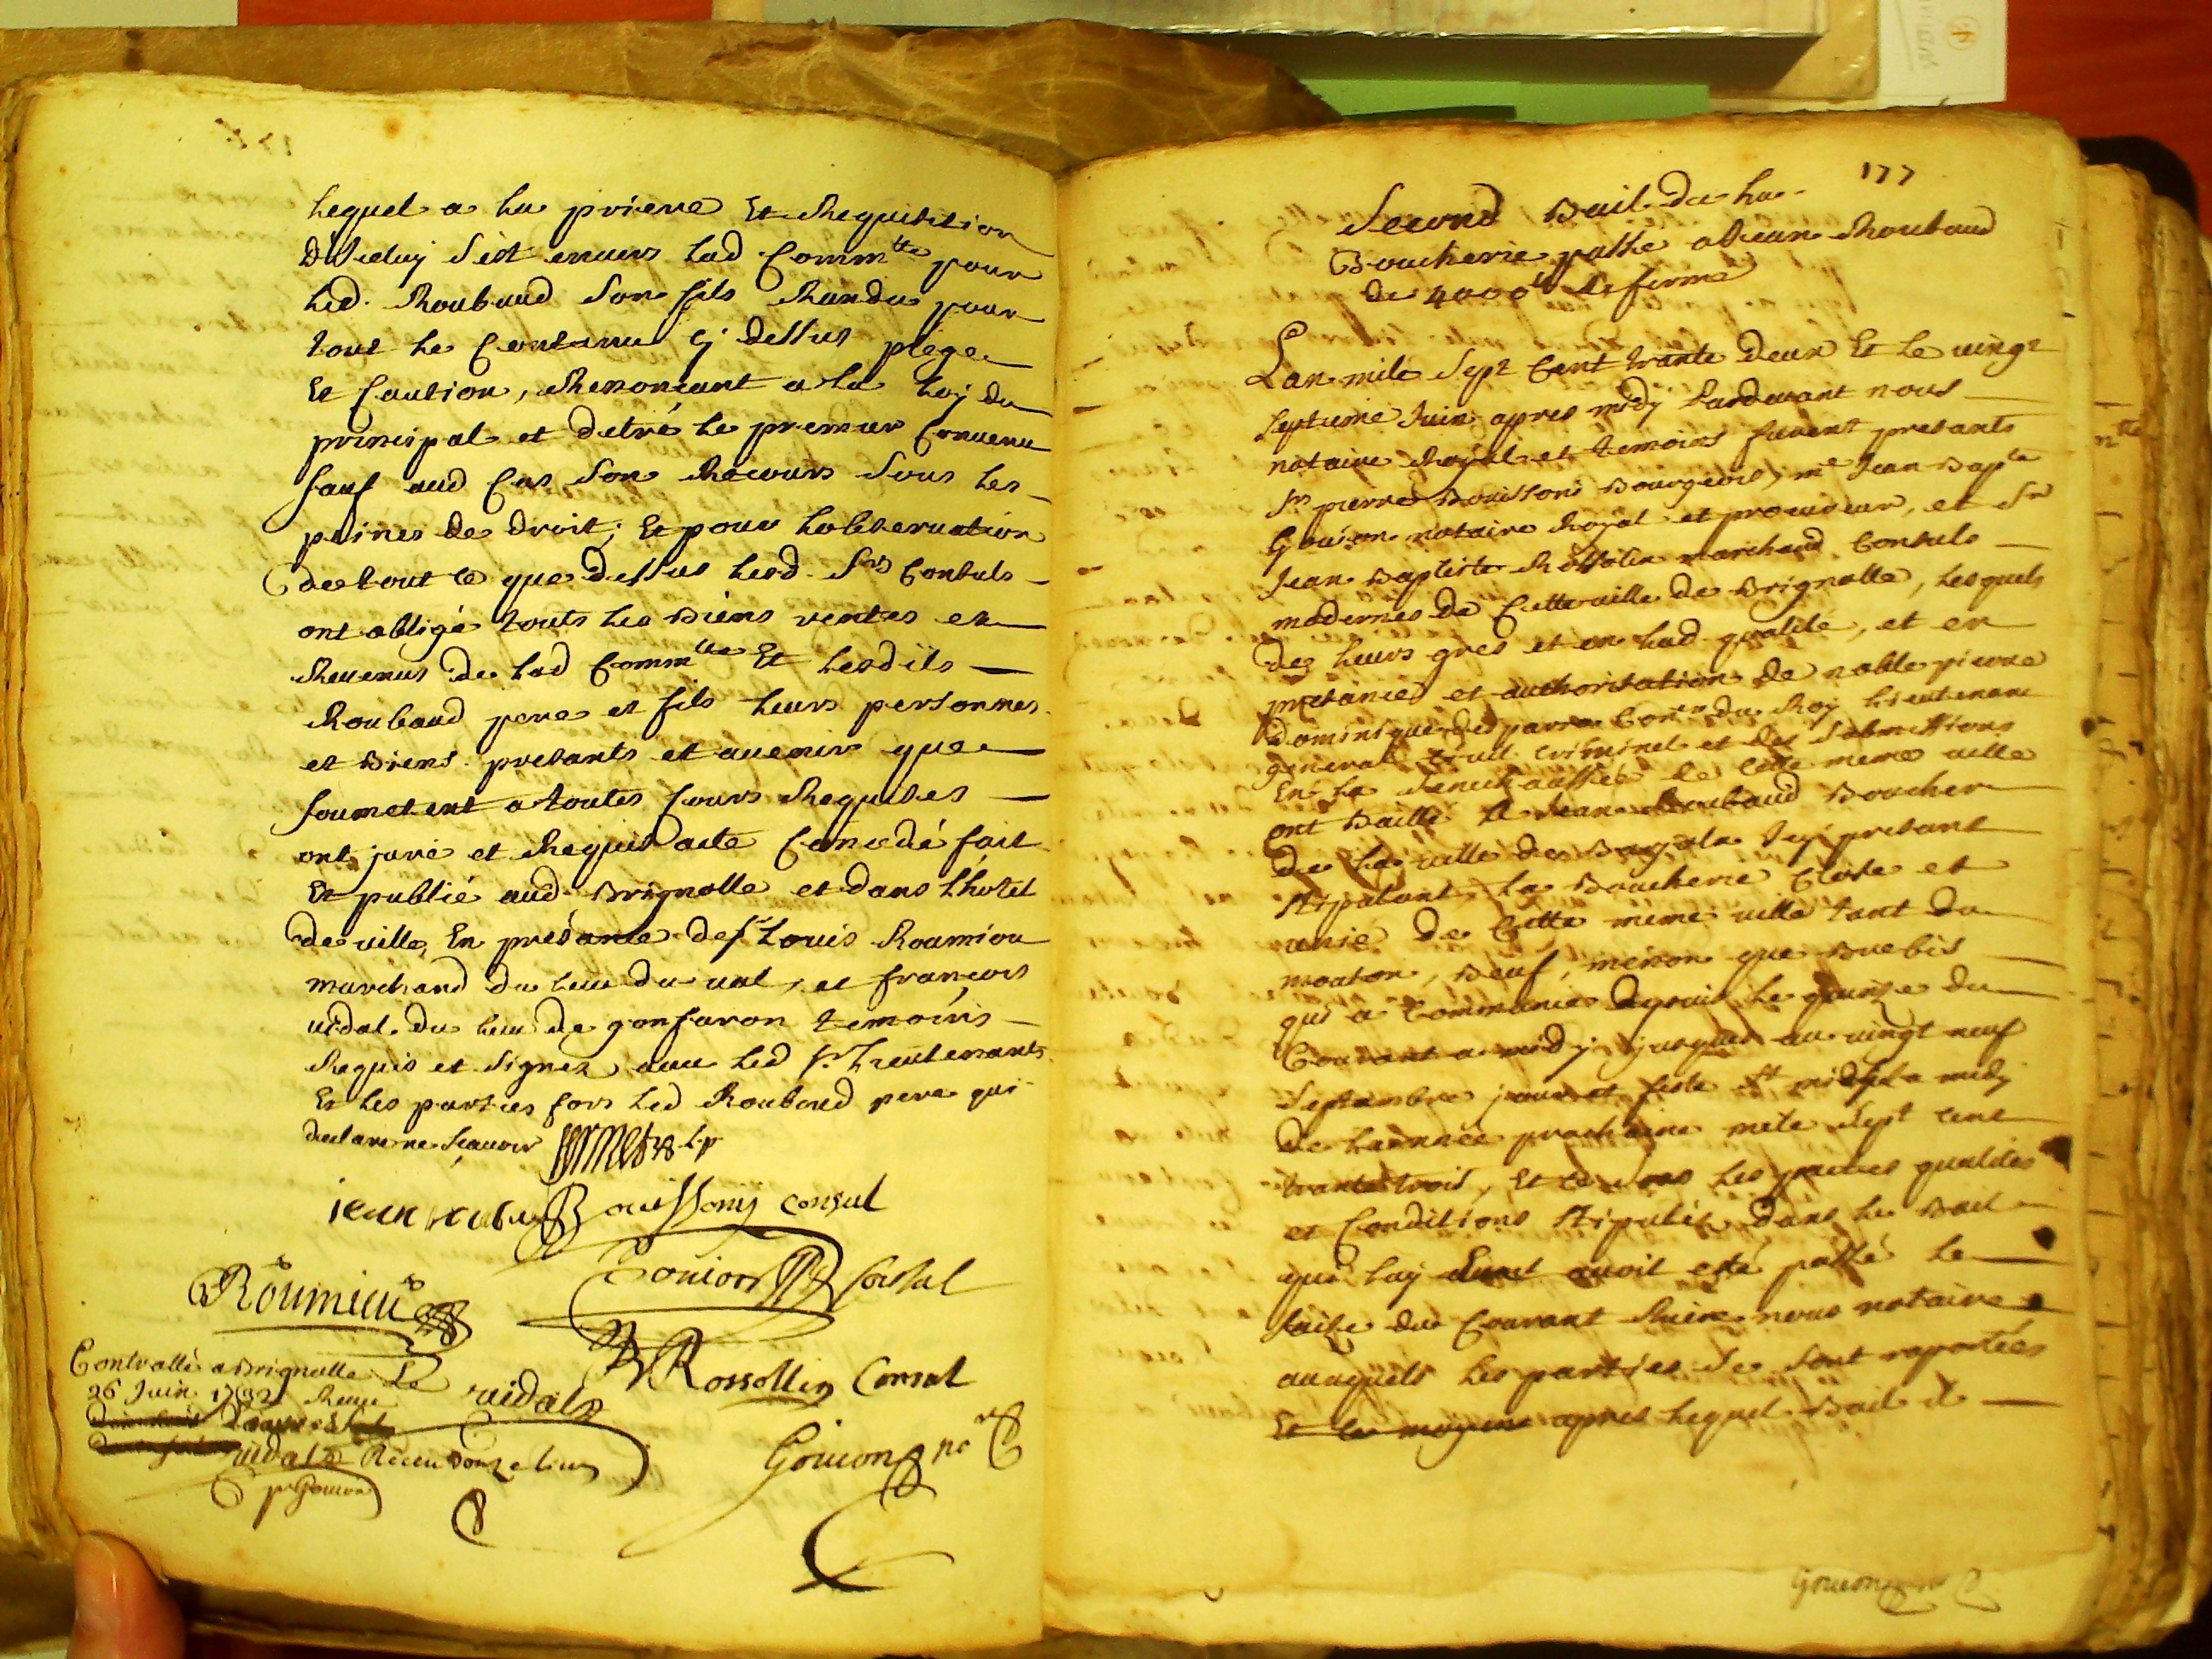 Lequel a La priere Et Requisition
d'Iceluy S'est envers Lad Comm^tté pour
Led. Roubaud Son fils Randu pour
tout Le Contenu Cy dessus plege
Et Caution, Renoncant a La Loy du
principal et detré Le premier Convenu
sauf aud Cas Son Recours Sous Les
peines de droit; Et pour Lobservation
de tout ce que dessus Lesd. S^rs Consuls
ont obligé touts Les Biens rentes et
Revenus de Lad Comm^tté Et Lesdits
Roubaud pere et fils Leurs personnes
et Biens presants et avenir que
soumetent a toutes Cours Requises
ont juré et Requis acte Concedé fait
Et publié aud Brignolle et dans L'hotel
de ville, En presance de s^r Louis Roumieu
marchand du Lieu du val, et francois
vidal du Lieu de gonfaron temoins
Requis et Signez avec Led s^r Lieutenant
Et Les parties fors Led Roubaud pere qui
declare ne Scavoir
jean Bouissony Consul
Gouion Consul
Roumieu
Rossollin Consul
Controllé a Brignolle Le
26 Juin 1732 Receu
vidal
vidal Receu Douze Livres
p^r Gouion
Gouion no^re
177
Second Bail de La
Boucherie passé a Jean Roubaud
de 4000^lt de ferme
Lan mile Sept Cent trante deux Et Le vingt
septieme Juin apres midy Pardevant nous
notaire Royal et temoins furent presants
S^rs pierre Bouissoni Bourgeois, m^e Jean Bap^te
Gouion notaire Royal et procureur, et S^r
Jean Baptiste Rossolin marchand Consuls
modernes de Cette ville de Brignolle, Lesquels
de Leurs gres et en Lad. qualité, et en
presance et authorisation de noble pierre
dominique du Roy Lieutenant
general Civil Criminel et des Submissions
En La Senechaussée de Cette meme ville
ont Baillé A Jean Roubaud Boucher
de La ville de Icy presant
stipulant La Boucherie Close et
unie de Cette meme ville tant du
mouton, Beuf, menon que Brebis
qui a Commancé depuis Le quinze du
Courant a midy jusques au vingt neuf
Septambre jour et feste S^t michel a midy
de Lannée prochaine mile Sept Cent
trante trois, Et ce Sous Les pactes qualités
et Conditions Stipulés dans Le Bail
qui Luy avoit esté passé Le
saize du Courant Riere nous notaire
auxquels Les parties Se Sont raportées
Et Le moyene apres Lequel Bail il
Gouion no^re